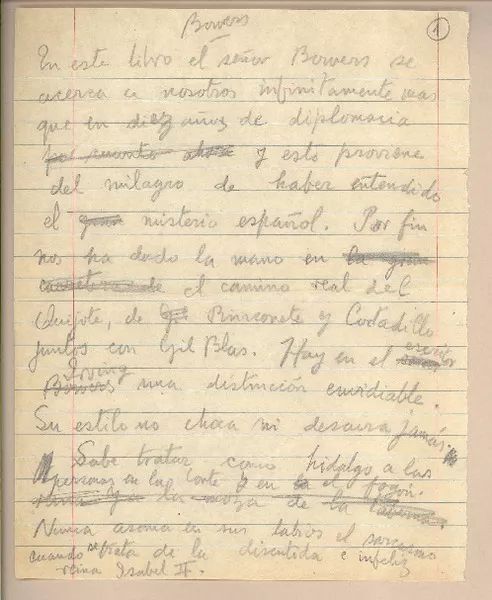 Bowers
1
En este libro el señor Bowers se
acerca a nosotros infinitamente mas
que en diez años de diplomacia
por cuanto ahora y esto proviene
del milagro de haber entendido
el gran misterio español. Por fin
nos ha dado la mano en la gran
carretera de el camino real del
Quijote, de Rinconete y Cortadillo
juntos con Gil Blas. Hay en el escritor
Irving
Bowers una distinción envidiable.
Su estilo no choca ni desaira jamás.
Sabe tratar como hidalgo a las
personas en la Corte y en el fogon.
la moza de la taberna.
Nunca asoma en sus labios el sarcasmo
cuando se trata de la discutida e infeliz
reina Isabel II.